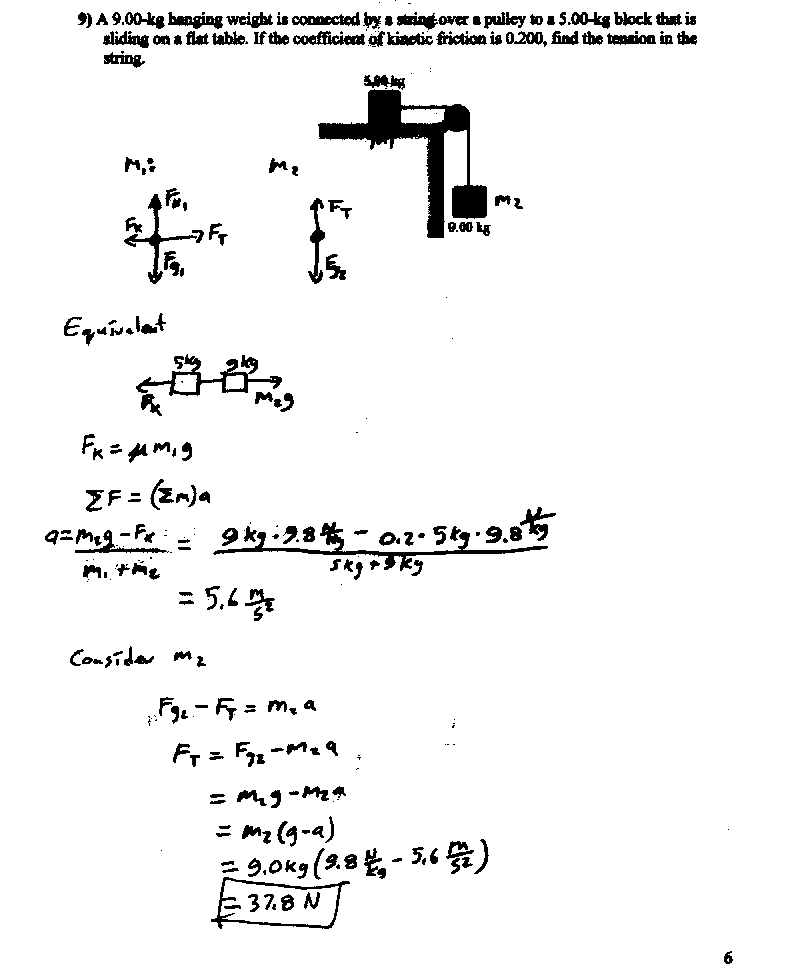 9) A 9.00-kg hanging weight is connected by a string over a pulley to a 5.00-kg block that is
sliding on a flat table. If the coefficient of kinetic friction is 0.200, find the tension in the
string.
5.00 kg
M₁:
M₂
Fₙ₁
Fₖ
F_T
F_g₁
F_T
F_g₂
m₂
9.00 kg
Equivalent
5kg 9kg
Fₖ
m₂g
Fₖ = μ m₁ g
ΣF = (Σm)a
a = (m₂g - Fₖ) / (m₁ + m₂) = (9 kg · 9.8 N/kg - 0.2 · 5 kg · 9.8 N/kg) / (5 kg + 9 kg)
= 5.6 m/s²
Consider m₂
F_g₂ - F_T = m₂ a
F_T = F_g₂ - m₂ a
= m₂g - m₂a
= m₂(g-a)
= 9.0 kg (9.8 N/kg - 5.6 m/s²)
= 37.8 N
6